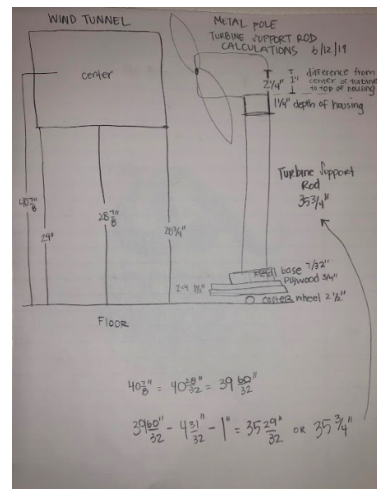 WIND TUNNEL
METAL POLE
TURBINE SUPPORT ROD
CALCULATIONS 6/12/19
center
2 1/4"
1"
difference from
center of turbine
to top of housing
1 1/4" depth of housing
Turbine Support
Rod
35 3/4"
40 7/8"
29"
28 7/8"
28 3/4"
base 7/32"
Plywood 3/4"
caster wheel 2 1/2"
FLOOR
40 7/8" = 40 28/32" = 39 60/32"
39 60/32" - 4 31/32" - 1" = 35 29/32" OR 35 3/4"